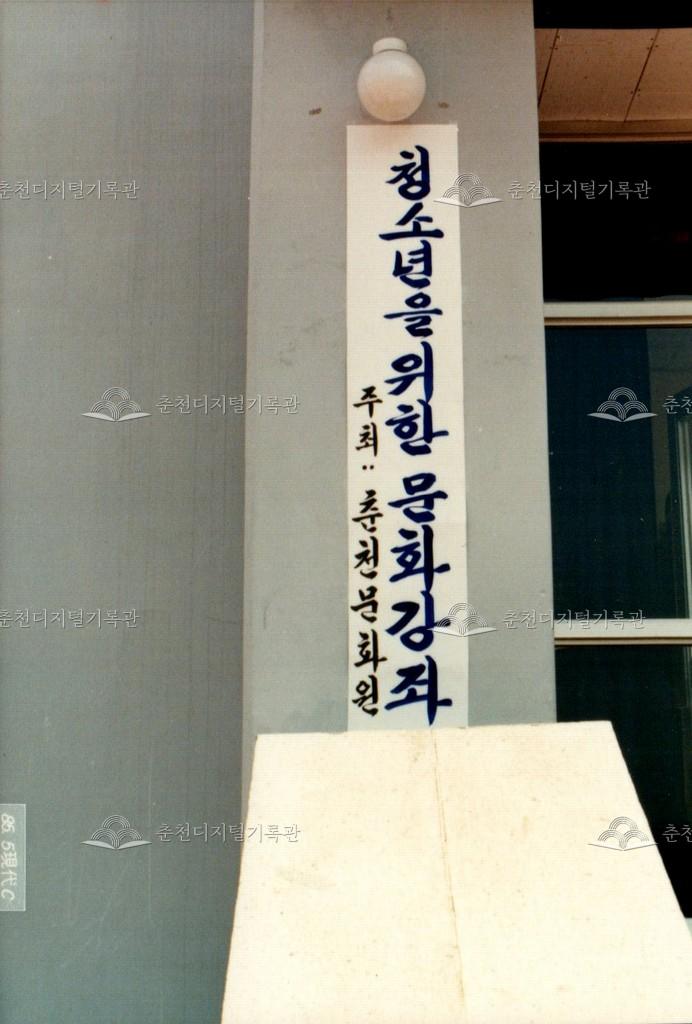 청소년을 위한 문화강좌
주최: 춘천문화원
춘천디지털기록관
춘천디지털기록관
춘천디지털기록관
춘천
춘천디지털기록관
춘천디지털기록관
춘천디지털기록관
춘
85. 5 現代 C